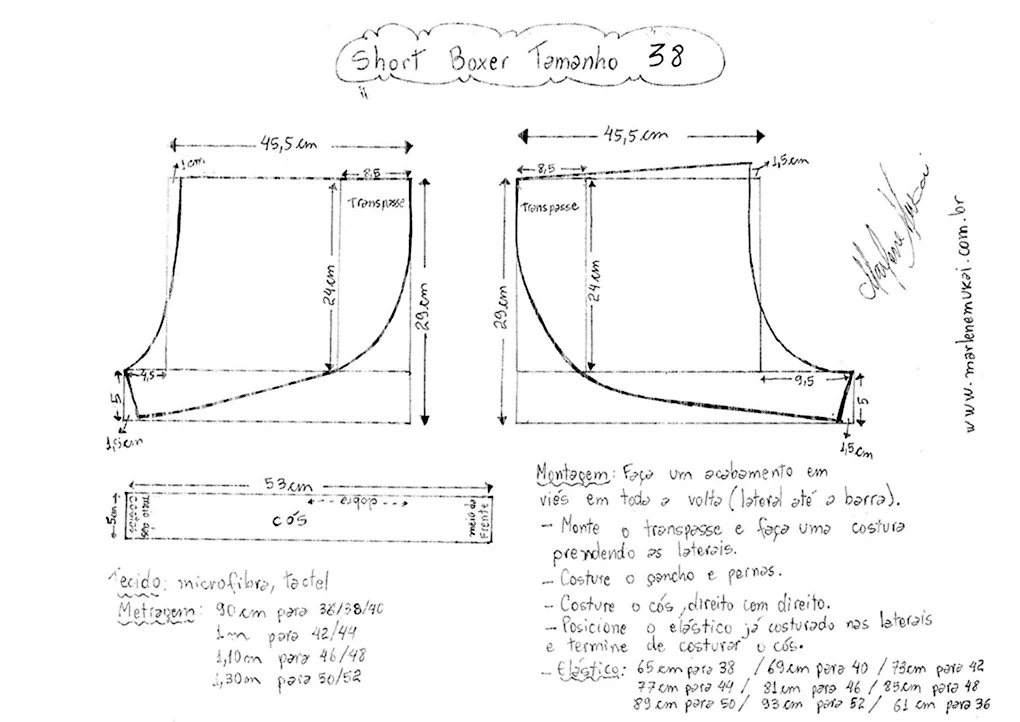 Short Boxer Tamanho 38
45,5 cm
1cm
8,5
Transpasse
24 cm
29 cm
4,5
5
1,5 cm
45,5 cm
1,5 cm
8,5
Transpasse
29 cm
24 cm
9,5
5
1,5 cm
Marlene Mukai
www.marlenemukai.com.br
53 cm
dobra
5cm
cós
meio da
Frente
Tecido: microfibra, tactel
Metragem: 90 cm para 36/38/40
1 m para 42/44
1,10m para 46/48
1,30m para 50/52
Montagem: Faça um acabamento em
viés em toda a volta (lateral até a barra).
- Monte o transpasse e faça uma costura
prendendo as laterais.
- Costure o gancho e pernas.
- Costure o cós, direito com direito.
- Posicione o elástico já costurado nas laterais
e termine de costurar o cós.
- Elástico: 65 cm para 38 / 69 cm para 40 / 73cm para 42
77 cm para 44 / 81 cm para 46 / 85 cm para 48
89 cm para 50 / 93 cm para 52 / 61 cm para 36